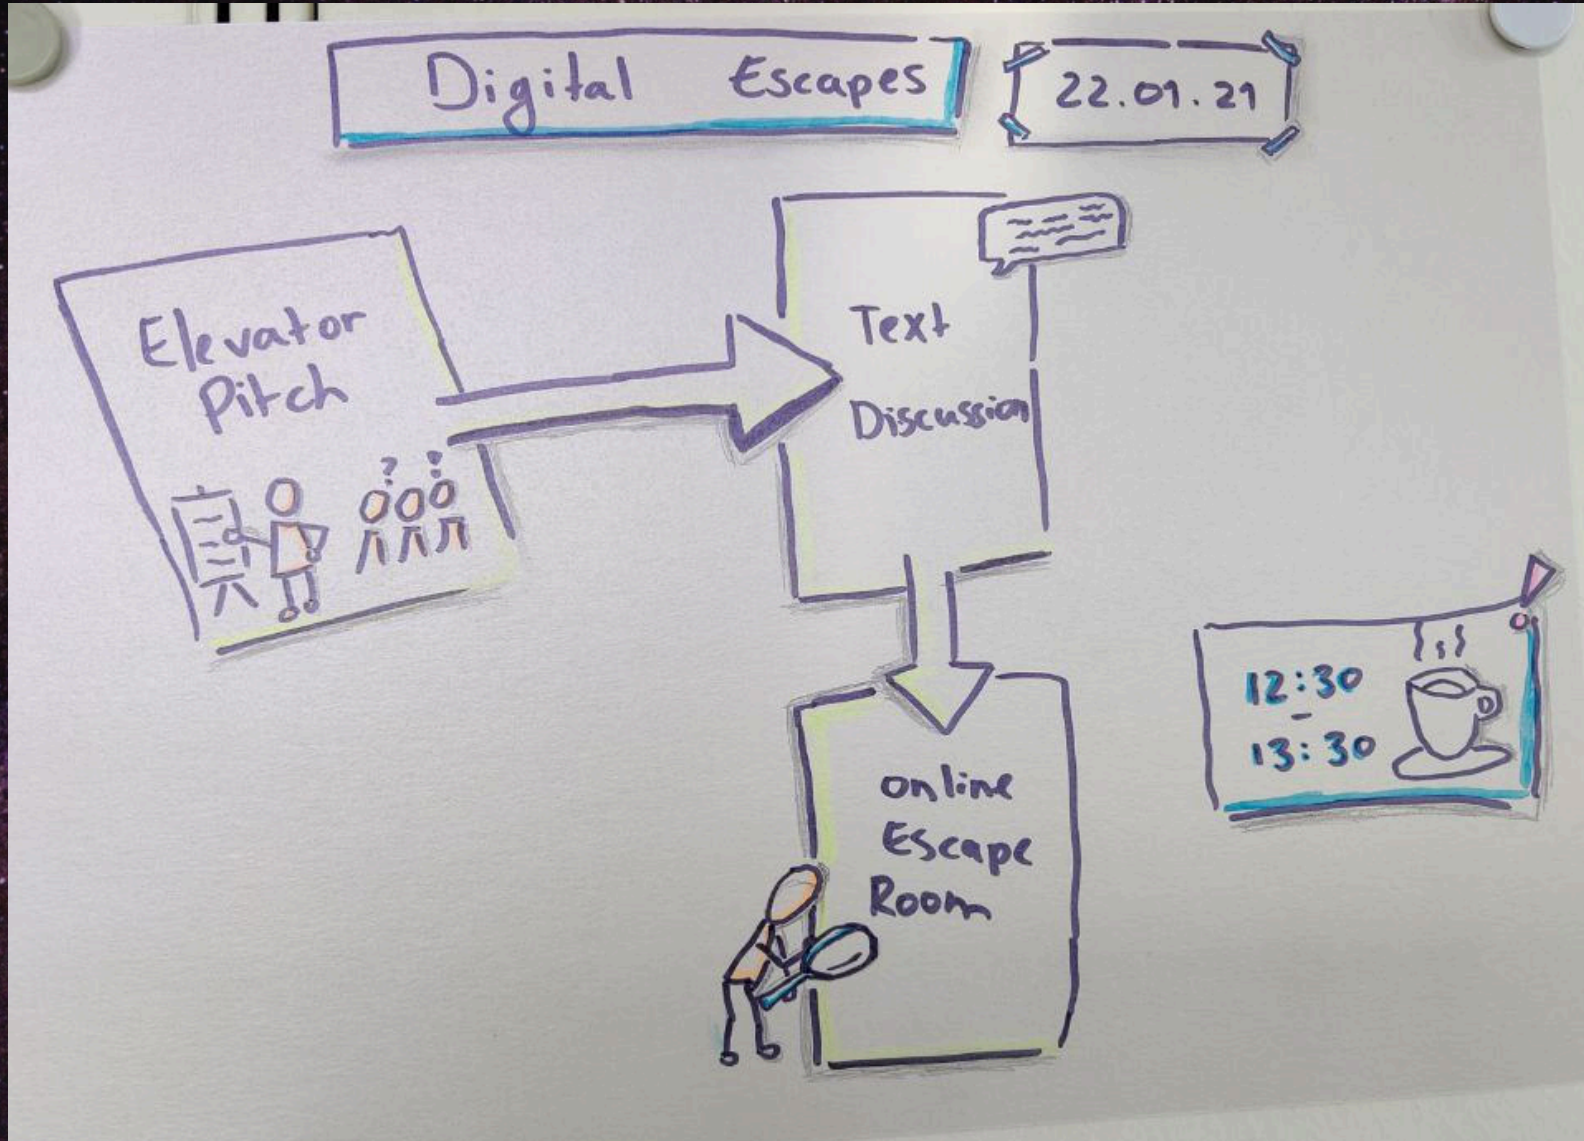 Digital Escapes
22.01.21
Elevator
Pitch
? ?
Text
Discussion
online
Escape
Room
12:30
-
13:30
!